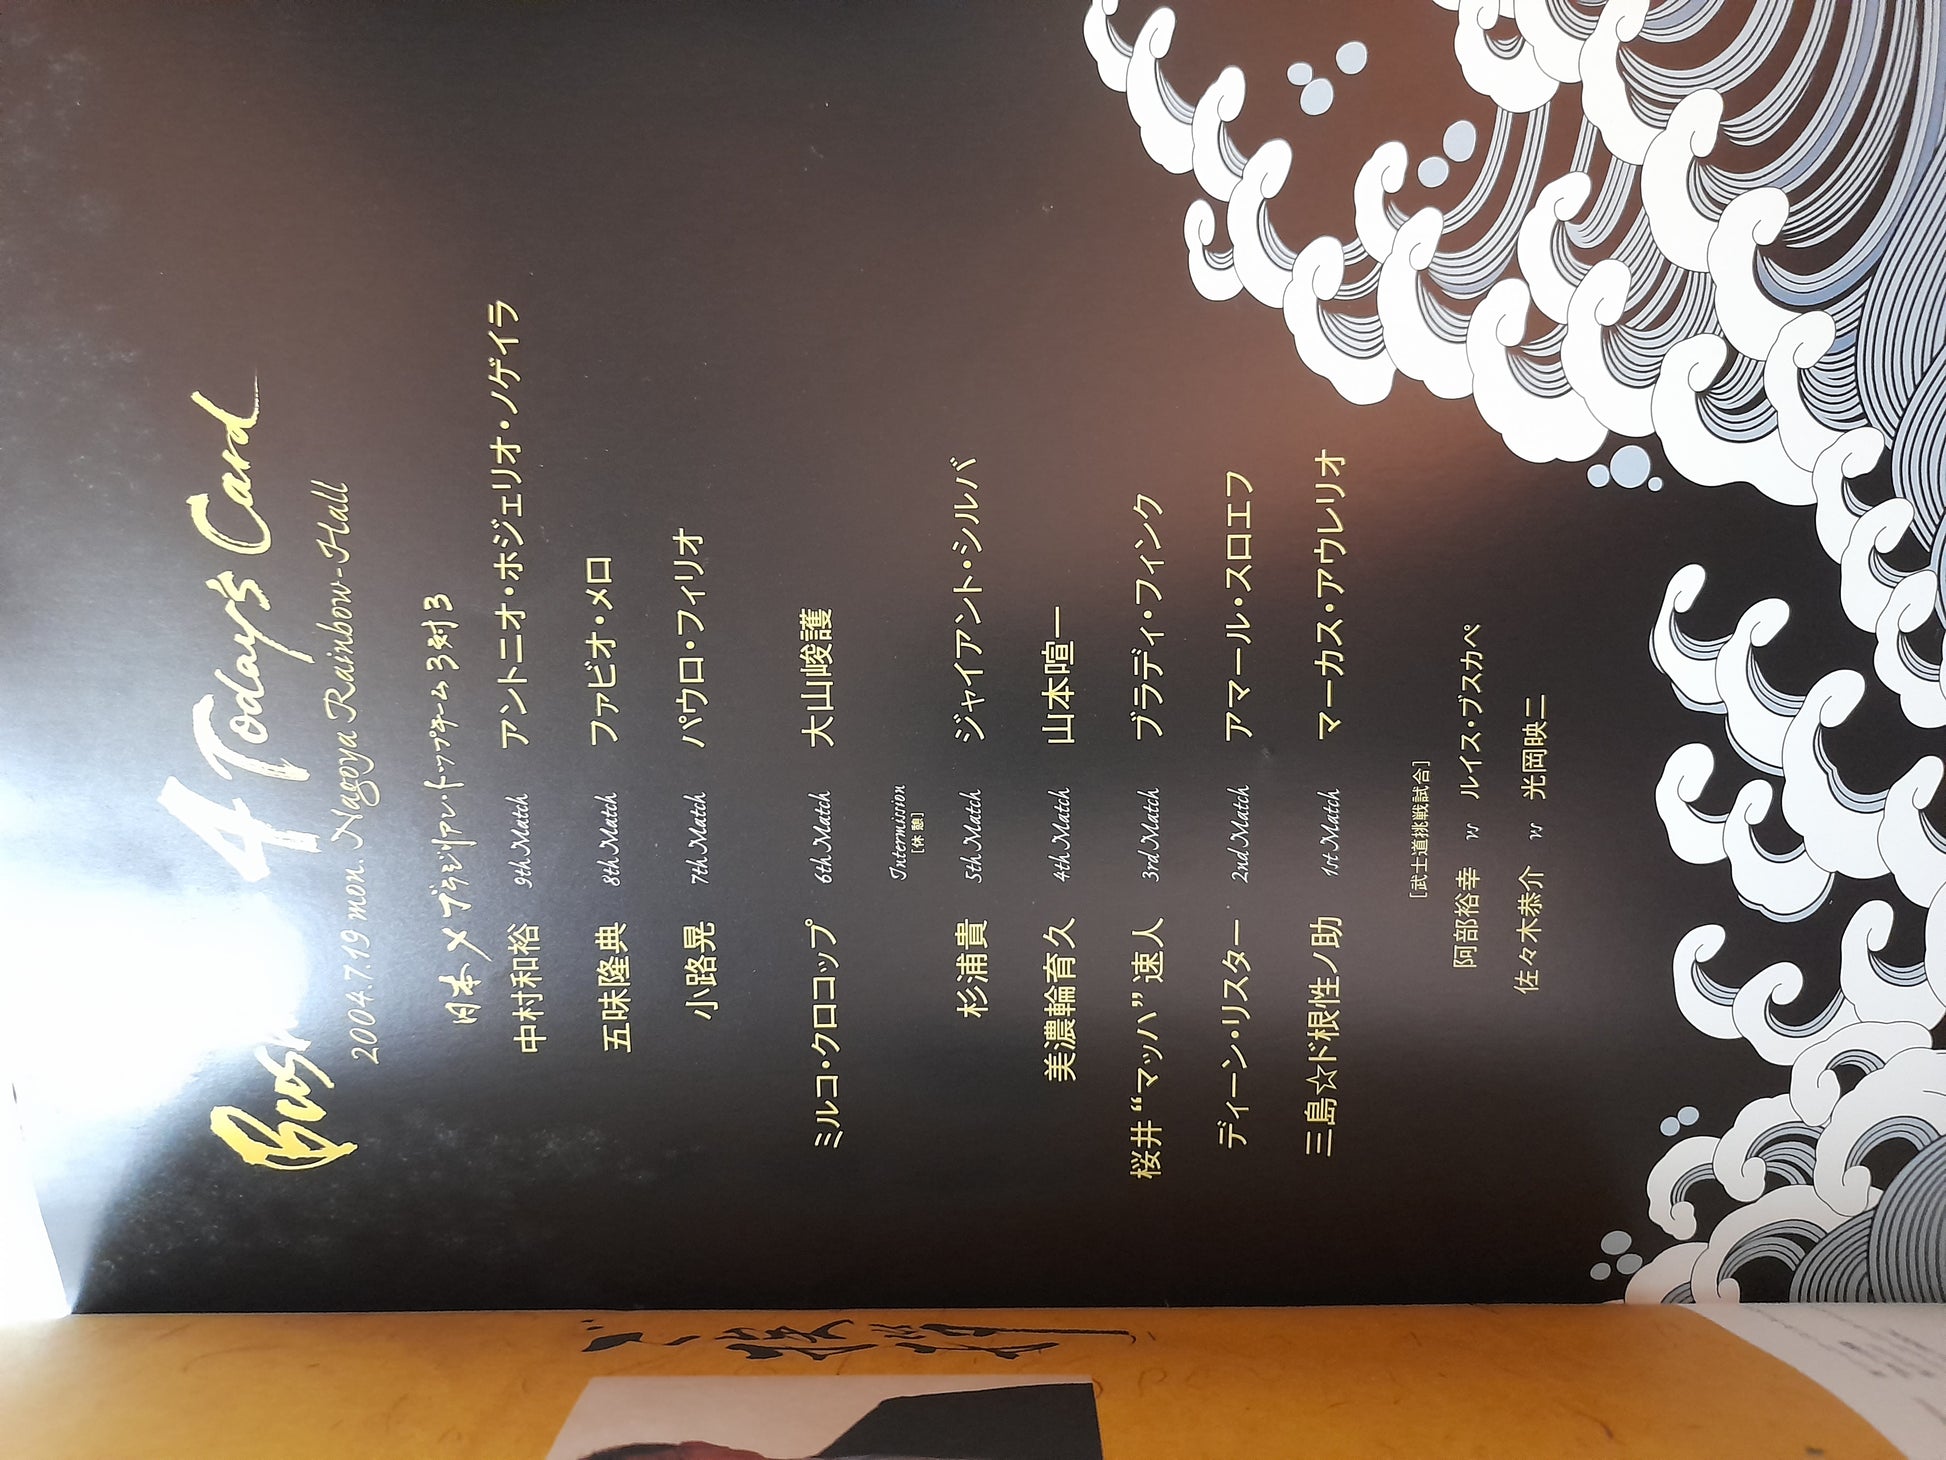 Bus 4 Today's Card
2004.7.19 mon. Nagoya Rainbow-Hall
日本×ブラジリアン・トップチーム 3対3
中村和裕 9th Match アントニオ・ホジェリオ・ノゲイラ
五味隆典 8th Match ファビオ・メロ
小路晃 7th Match パウロ・フィリオ
ミルコ・クロコップ 6th Match 大山峻護
Intermission
[休憩]
杉浦貴 5th Match ジャイアント・シルバ
美濃輪育久 4th Match 山本喧一
桜井“マッハ”速人 3rd Match ブラディ・フィンク
ディーン・リスター 2nd Match アマール・スロエフ
三島☆ド根性ノ助 1st Match マーカス・アウレリオ
[武士道挑戦試合]
阿部裕幸 vs ルイス・ブスカペ
佐々木恭介 vs 光岡映二
ご挨拶